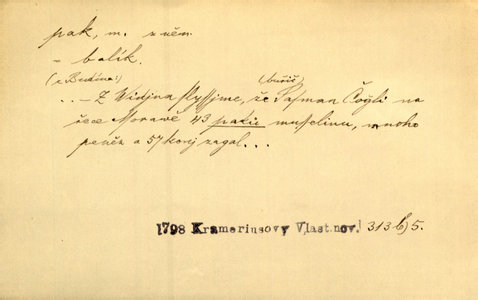 pak, m. z něm.
- balík.
(z Budína:) (buřič)
... - Z Widjna slyssjme, že Pasman Čoğli na
řece Moravě 43 paků muselinu, mnoho
peněz a 57 konj zagal...
1798 Krameriusovy Vlast.nov. 313 b) 5.